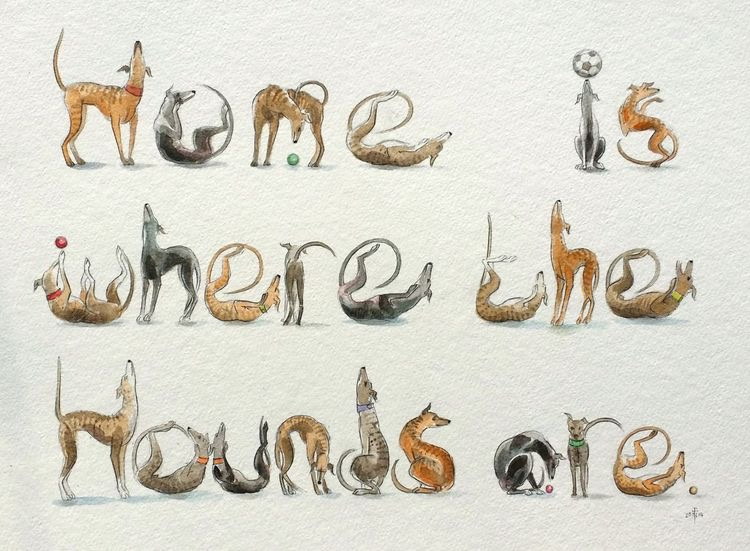 Home is
where the
Hounds are.